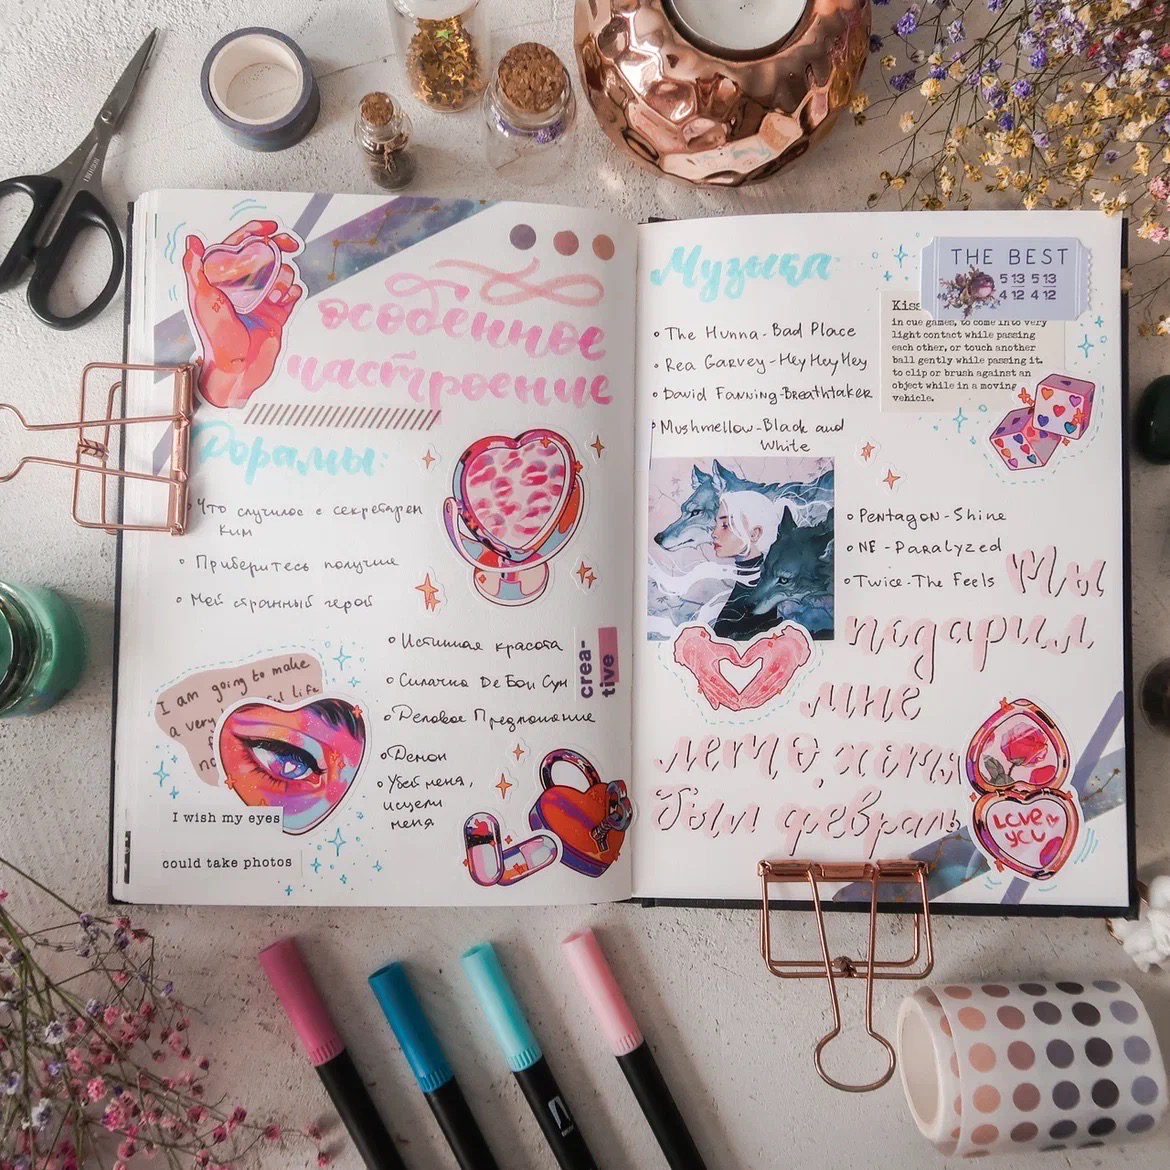 особенное
настроение
Дорамы:
Что случилос с секретарем
Ким
Приберитесь получше
Мой странный герой
Истинная красота
Силачка До Бон Сун
Деловое Предложение
Демон
Убей меня,
исцели
меня
crea-
tive
I am going to make
a very
life
I wish my eyes
could take photos
Музыка
The Hunna - Bad Place
Rea Garvey - Hey Hey Hey
David Fanning - Breathtaker
Mushmellow - Black and
White
THE BEST
5 13 5 13
4 12 4 12
Kiss
in cue games, to come into very
light contact while passing
each other, or touch another
ball gently while passing it.
to clip or brush against an
object while in a moving
vehicle.
Pentagon - Shine
NF - Paralyzed
Twice - The Feels
Ты
подарил
мне
лето, хотя
был февраль
LOVE
YOU